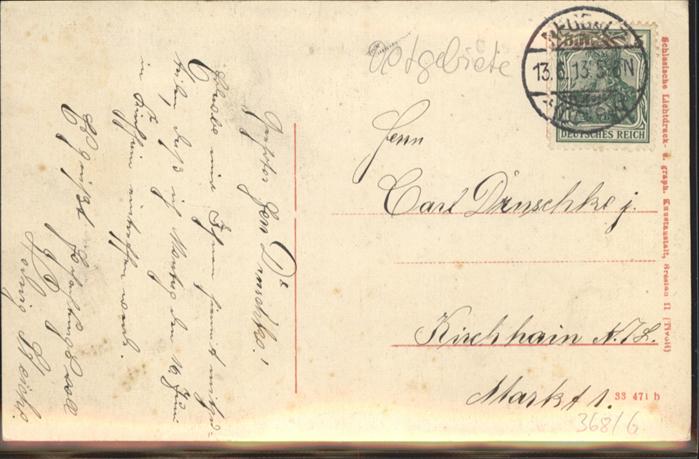 Geehrter Herr Druschke!
Erlaube mir Ihnen hiermit mitzu-
teilen, daß ich Montag den 16. Juni
in Kirchhain eintreffen werde.
Hochachtungsvoll
Ostgebiete
Herrn
Carl Druschke j.
Kirchhain N./L.
Markt 1.
13.6.13.
DEUTSCHES REICH
5
Schlesische Lichtdruck- u. graph. Kunstanstalt, Breslau II (Tivoli)
33 471 b
368/6